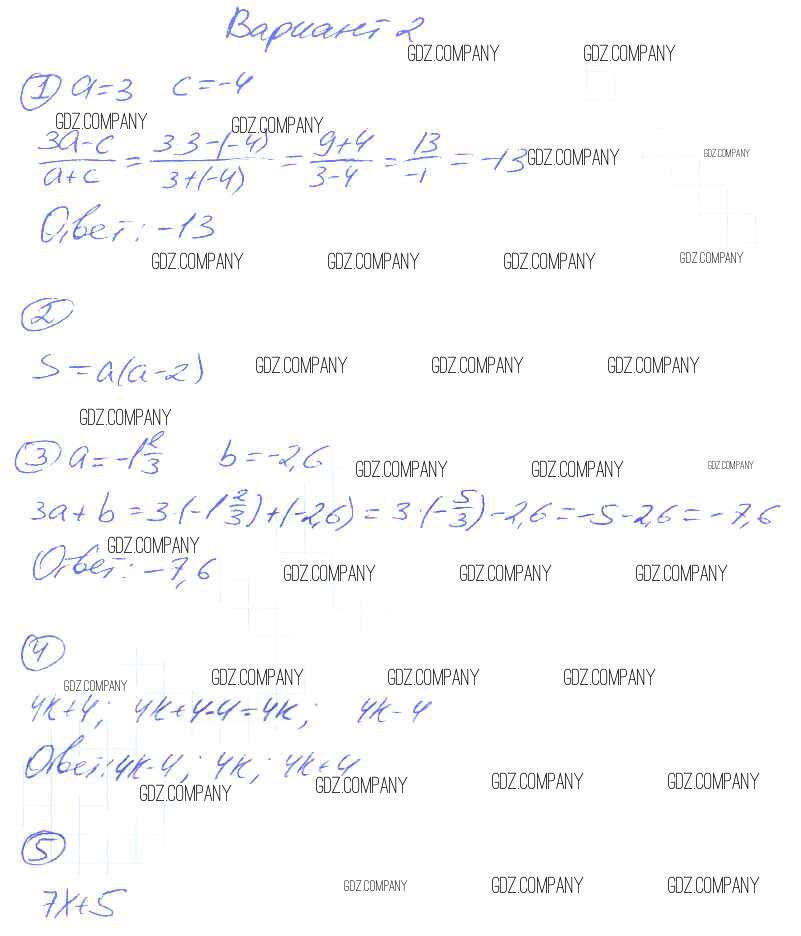 Вариант 2
GDZ.COMPANY GDZ.COMPANY
① a=3 c=-4
GDZ.COMPANY GDZ.COMPANY
(3a-c)/(a+c) = (3·3-(-4))/(3+(-4)) = (9+4)/(3-4) = 13/-1 = -13 GDZ.COMPANY GDZ.COMPANY
Ответ: -13
GDZ.COMPANY GDZ.COMPANY GDZ.COMPANY GDZ.COMPANY
②
S = a(a-2) GDZ.COMPANY GDZ.COMPANY GDZ.COMPANY
GDZ.COMPANY
③ a = -1 2/3 b = -2,6
GDZ.COMPANY GDZ.COMPANY GDZ.COMPANY
3a+b = 3·(-1 2/3)+(-2,6) = 3·(-5/3)-2,6 = -5-2,6 = -7,6
GDZ.COMPANY
Ответ: -7,6 GDZ.COMPANY GDZ.COMPANY GDZ.COMPANY
④
GDZ.COMPANY GDZ.COMPANY GDZ.COMPANY GDZ.COMPANY
4к+4; 4к+4-4=4к; 4к-4
Ответ: 4к-4; 4к; 4к+4
GDZ.COMPANY GDZ.COMPANY GDZ.COMPANY GDZ.COMPANY
⑤
7x+5 GDZ.COMPANY GDZ.COMPANY GDZ.COMPANY